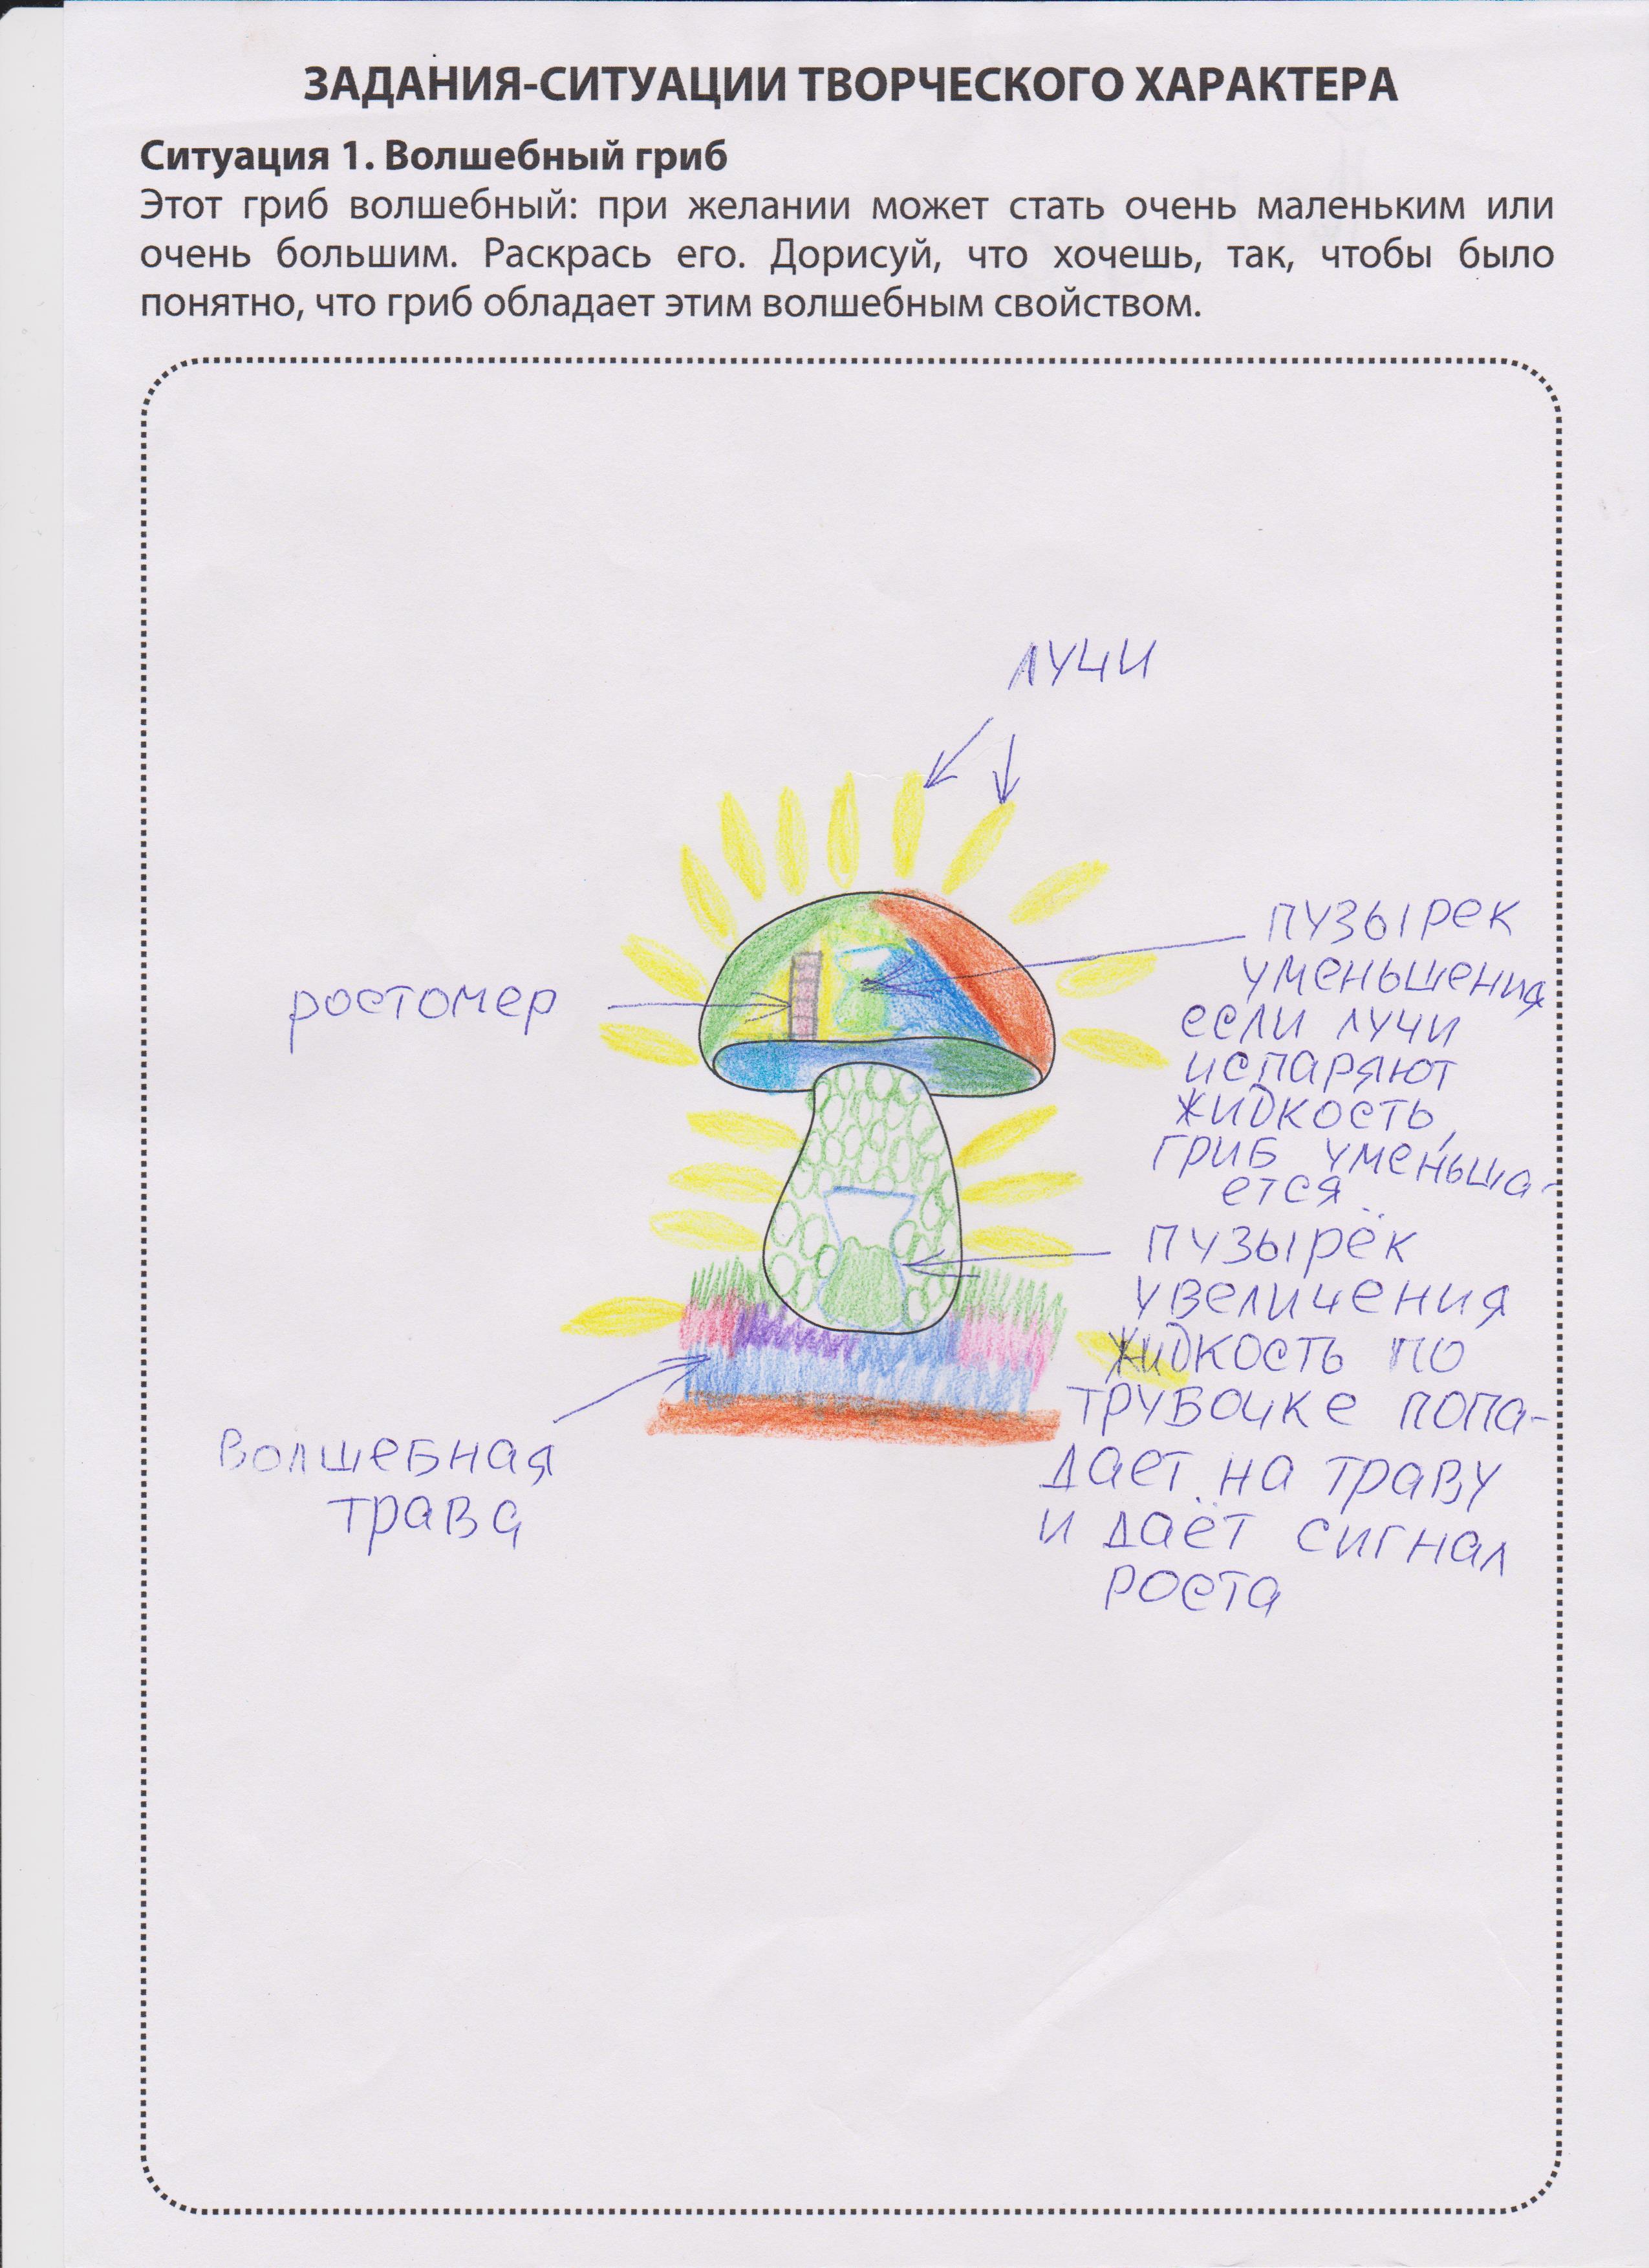 ЗАДАНИЯ-СИТУАЦИИ ТВОРЧЕСКОГО ХАРАКТЕРА
Ситуация 1. Волшебный гриб
Этот гриб волшебный: при желании может стать очень маленьким или
очень большим. Раскрась его. Дорисуй, что хочешь, так, чтобы было
понятно, что гриб обладает этим волшебным свойством.
лучи
ростомер
пузырек
уменьшения
если лучи
испаряют
жидкость,
гриб уменьша-
ется
пузырёк
увеличения
жидкость по
трубочке попа-
дает на траву
и даёт сигнал
роста
волшебная
трава